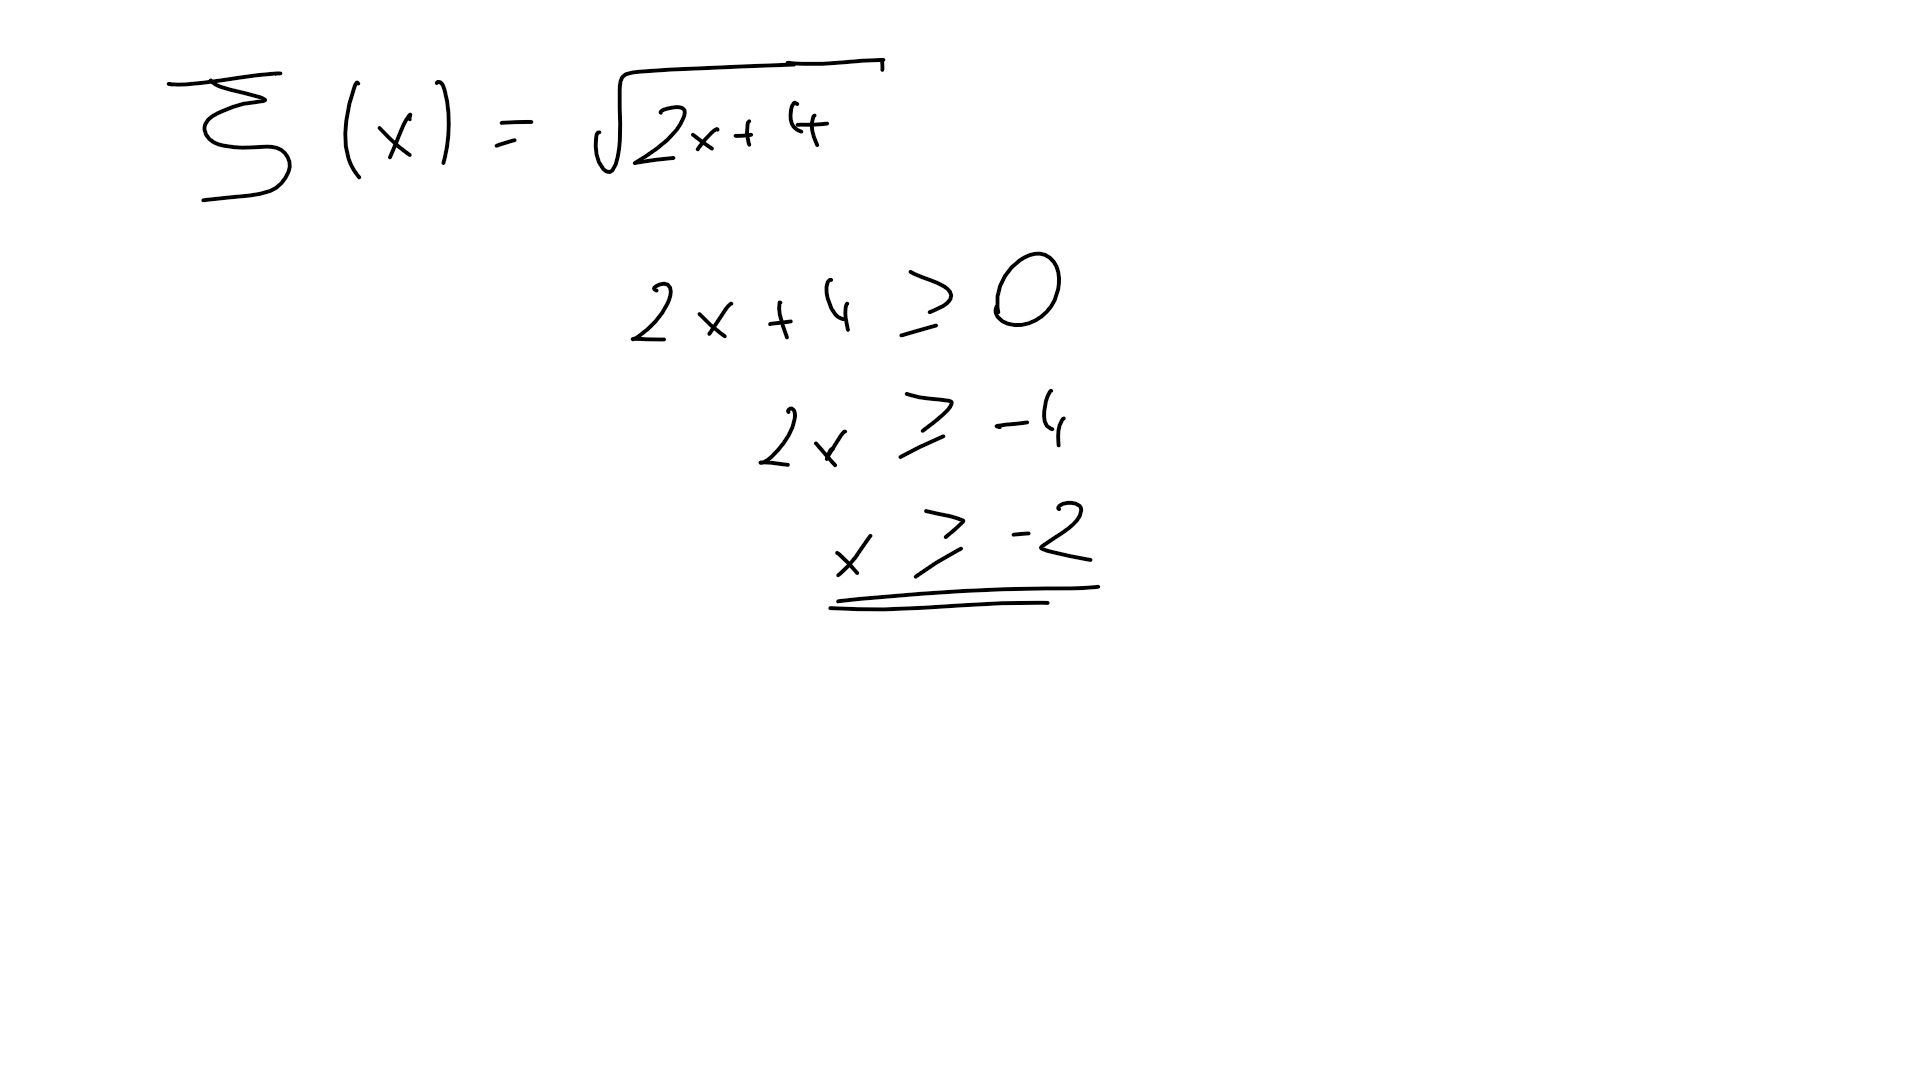 ξ(x) = √(2x + 4)
2x + 4 ≥ 0
2x ≥ -4
x ≥ -2